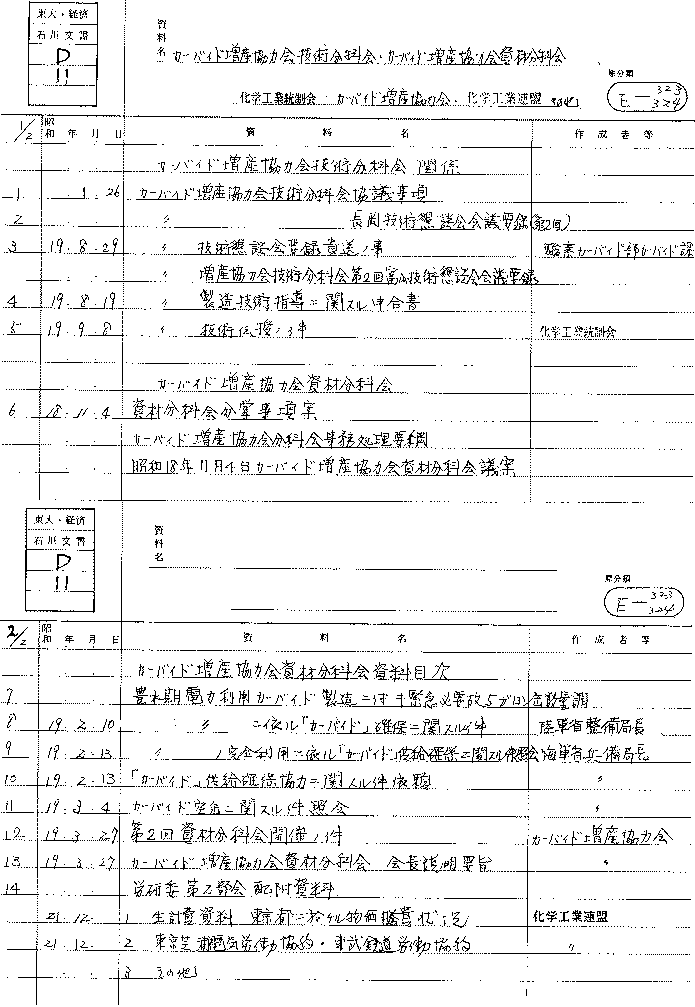 東大・経済
石川文書
D
11
資料名
カーバイド増産協力会技術分科会・カーバイド増産協力会資材分科会
化学工業統制会・カーバイド増産協力会・化学工業連盟
原分類
E—323
324
1/2 昭和 年 月 日 資料名 作成者等
カーバイド増産協力会技術分科会 関係
1 ・1・26 カーバイド増産協力会技術分科会協議事項
2 〃 長岡技術懇談会会議要録(第2回)
3 19・8・29 〃 技術懇談会要録 送ノ事
〃 増産協力会技術分科会第2回 技術懇談会会議要録
4 19・8・19 〃 製造技術指導ニ関スル申合書
5 19・9・8 〃 技術 ノ事 化学工業統制会
カーバイド増産協力会資材分科会
6 18・11・4 資材分科会分掌事項案
カーバイド増産協力会分科会事務処理要綱
昭和18年11月4日カーバイド増産協力会資材分科会議案
東大・経済
石川文書
D
11
資料名
原分類
E—323
324
2/2 昭和 年 月 日 資料名 作成者等
カーバイド増産協力会資材分科会資料目次
7 豊水期電力利用カーバイド製造
8 19・2・10 〃 ニ依ル「カーバイド」確保ニ関スル件 陸軍省整備局長
9 19・2・13 〃 ニ依ル「カーバイド」供給確保ニ関スル 海軍省兵備局長
10 19・2・13 「カーバイド」供給確保協力ニ関スル件依頼 〃
11 19・3・4 カーバイド ニ関スル件照会 〃
12 19・3・29 第2回資材分科会開催ノ件 カーバイド増産協力会
13 19・3・27 カーバイド増産協力会資材分科会 会長説明要旨 〃
14 労研委第2部会配附資料
21・12・ 1 生計費資料 東京都ニ於ケル物価 状況 化学工業連盟
21・12・ 2 東京芝浦電気労働協約・東武鉄道労働協約 〃
3 その他